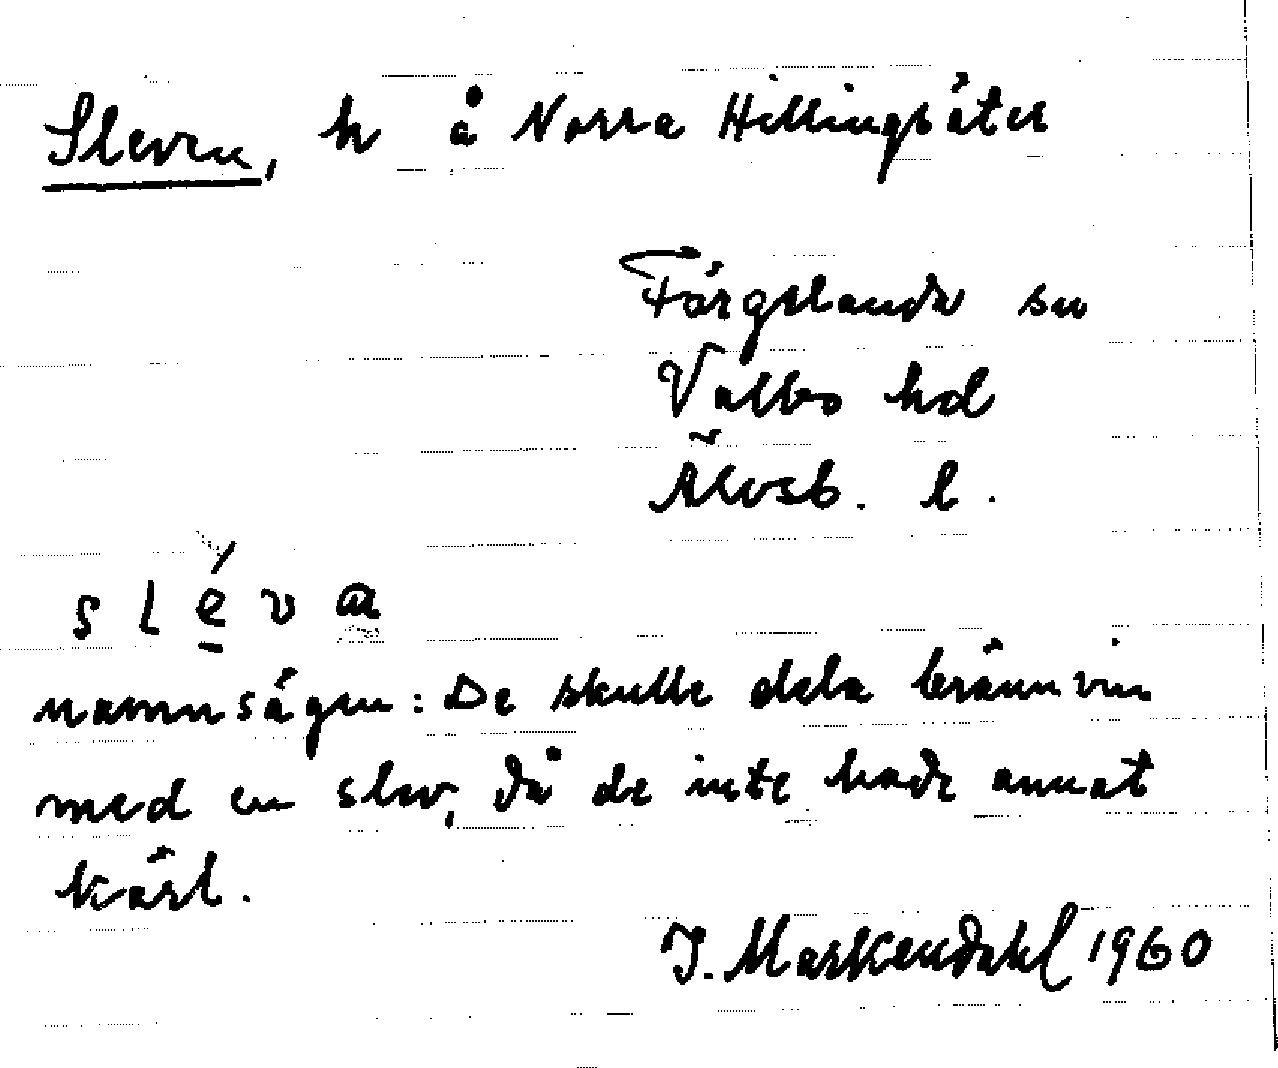 Sleven, h å Norra Hillingsäter
Färgelanda sn
Valbo hd
Älvsb. l.
s l é v a
namnsägen: De skulle dela brännvin
med en slev, då de inte hade annat
kärl.
J. Markendahl 1960